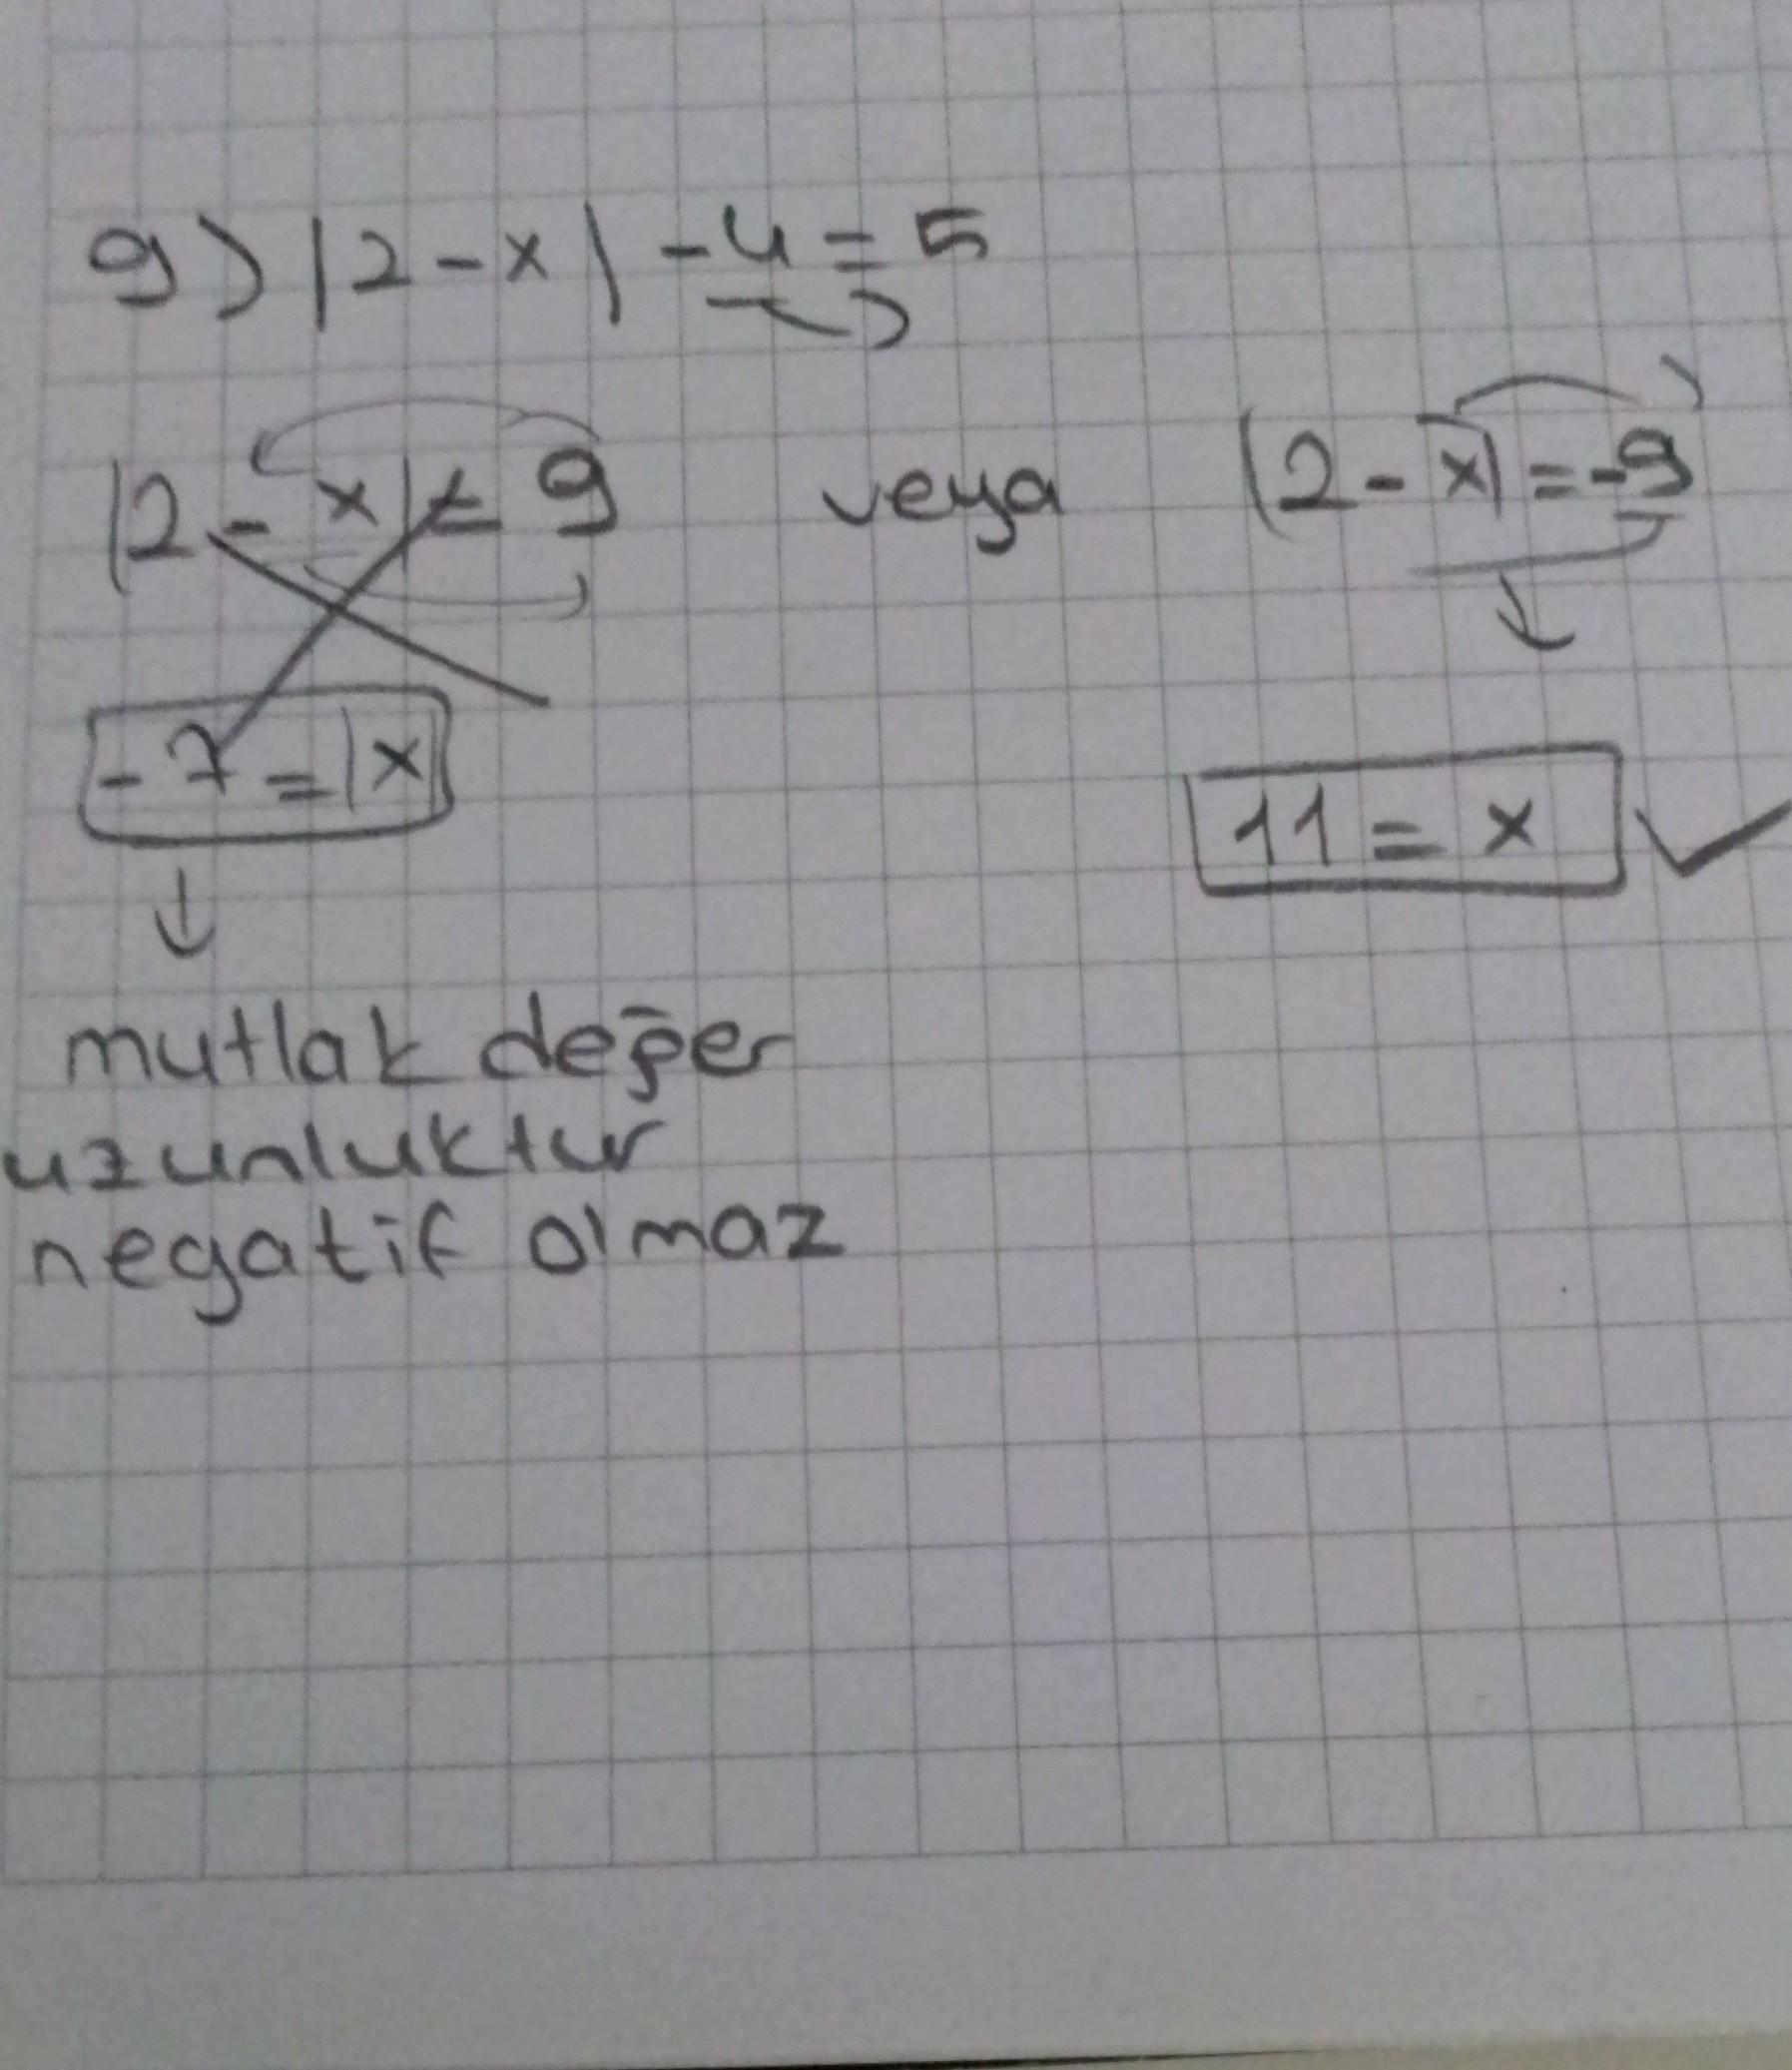 9) |2-x| -4 = 5
|2 - x| = 9 veya |2 - x| = -9
-7 = |x|
11 = x ✓
mutlak değer
uzunluktur
negatif olmaz